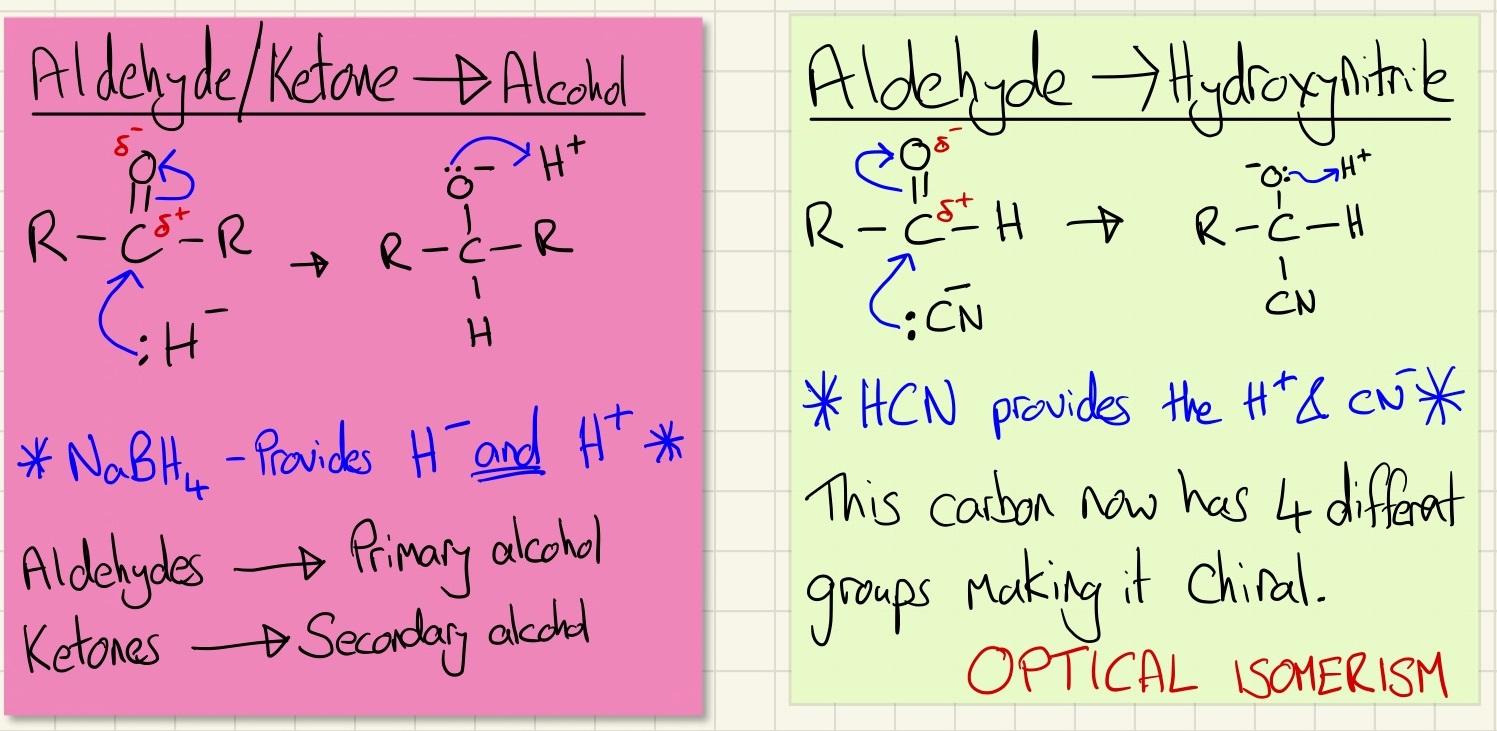 Aldehyde/Ketone → Alcohol
δ⁻
O
R – C δ⁺ – R
:H⁻
→
:O⁻ H⁺
R – C – R
H
* NaBH₄ – Provides H⁻ and H⁺ *
Aldehydes → Primary alcohol
Ketones → Secondary alcohol
Aldehyde → Hydroxynitrile
O δ⁻
R – C δ⁺ – H
:C̄N
→
⁻O: H⁺
R – C – H
CN
* HCN provides the H⁺ & CN⁻ *
This carbon now has 4 different
groups making it Chiral.
OPTICAL ISOMERISM